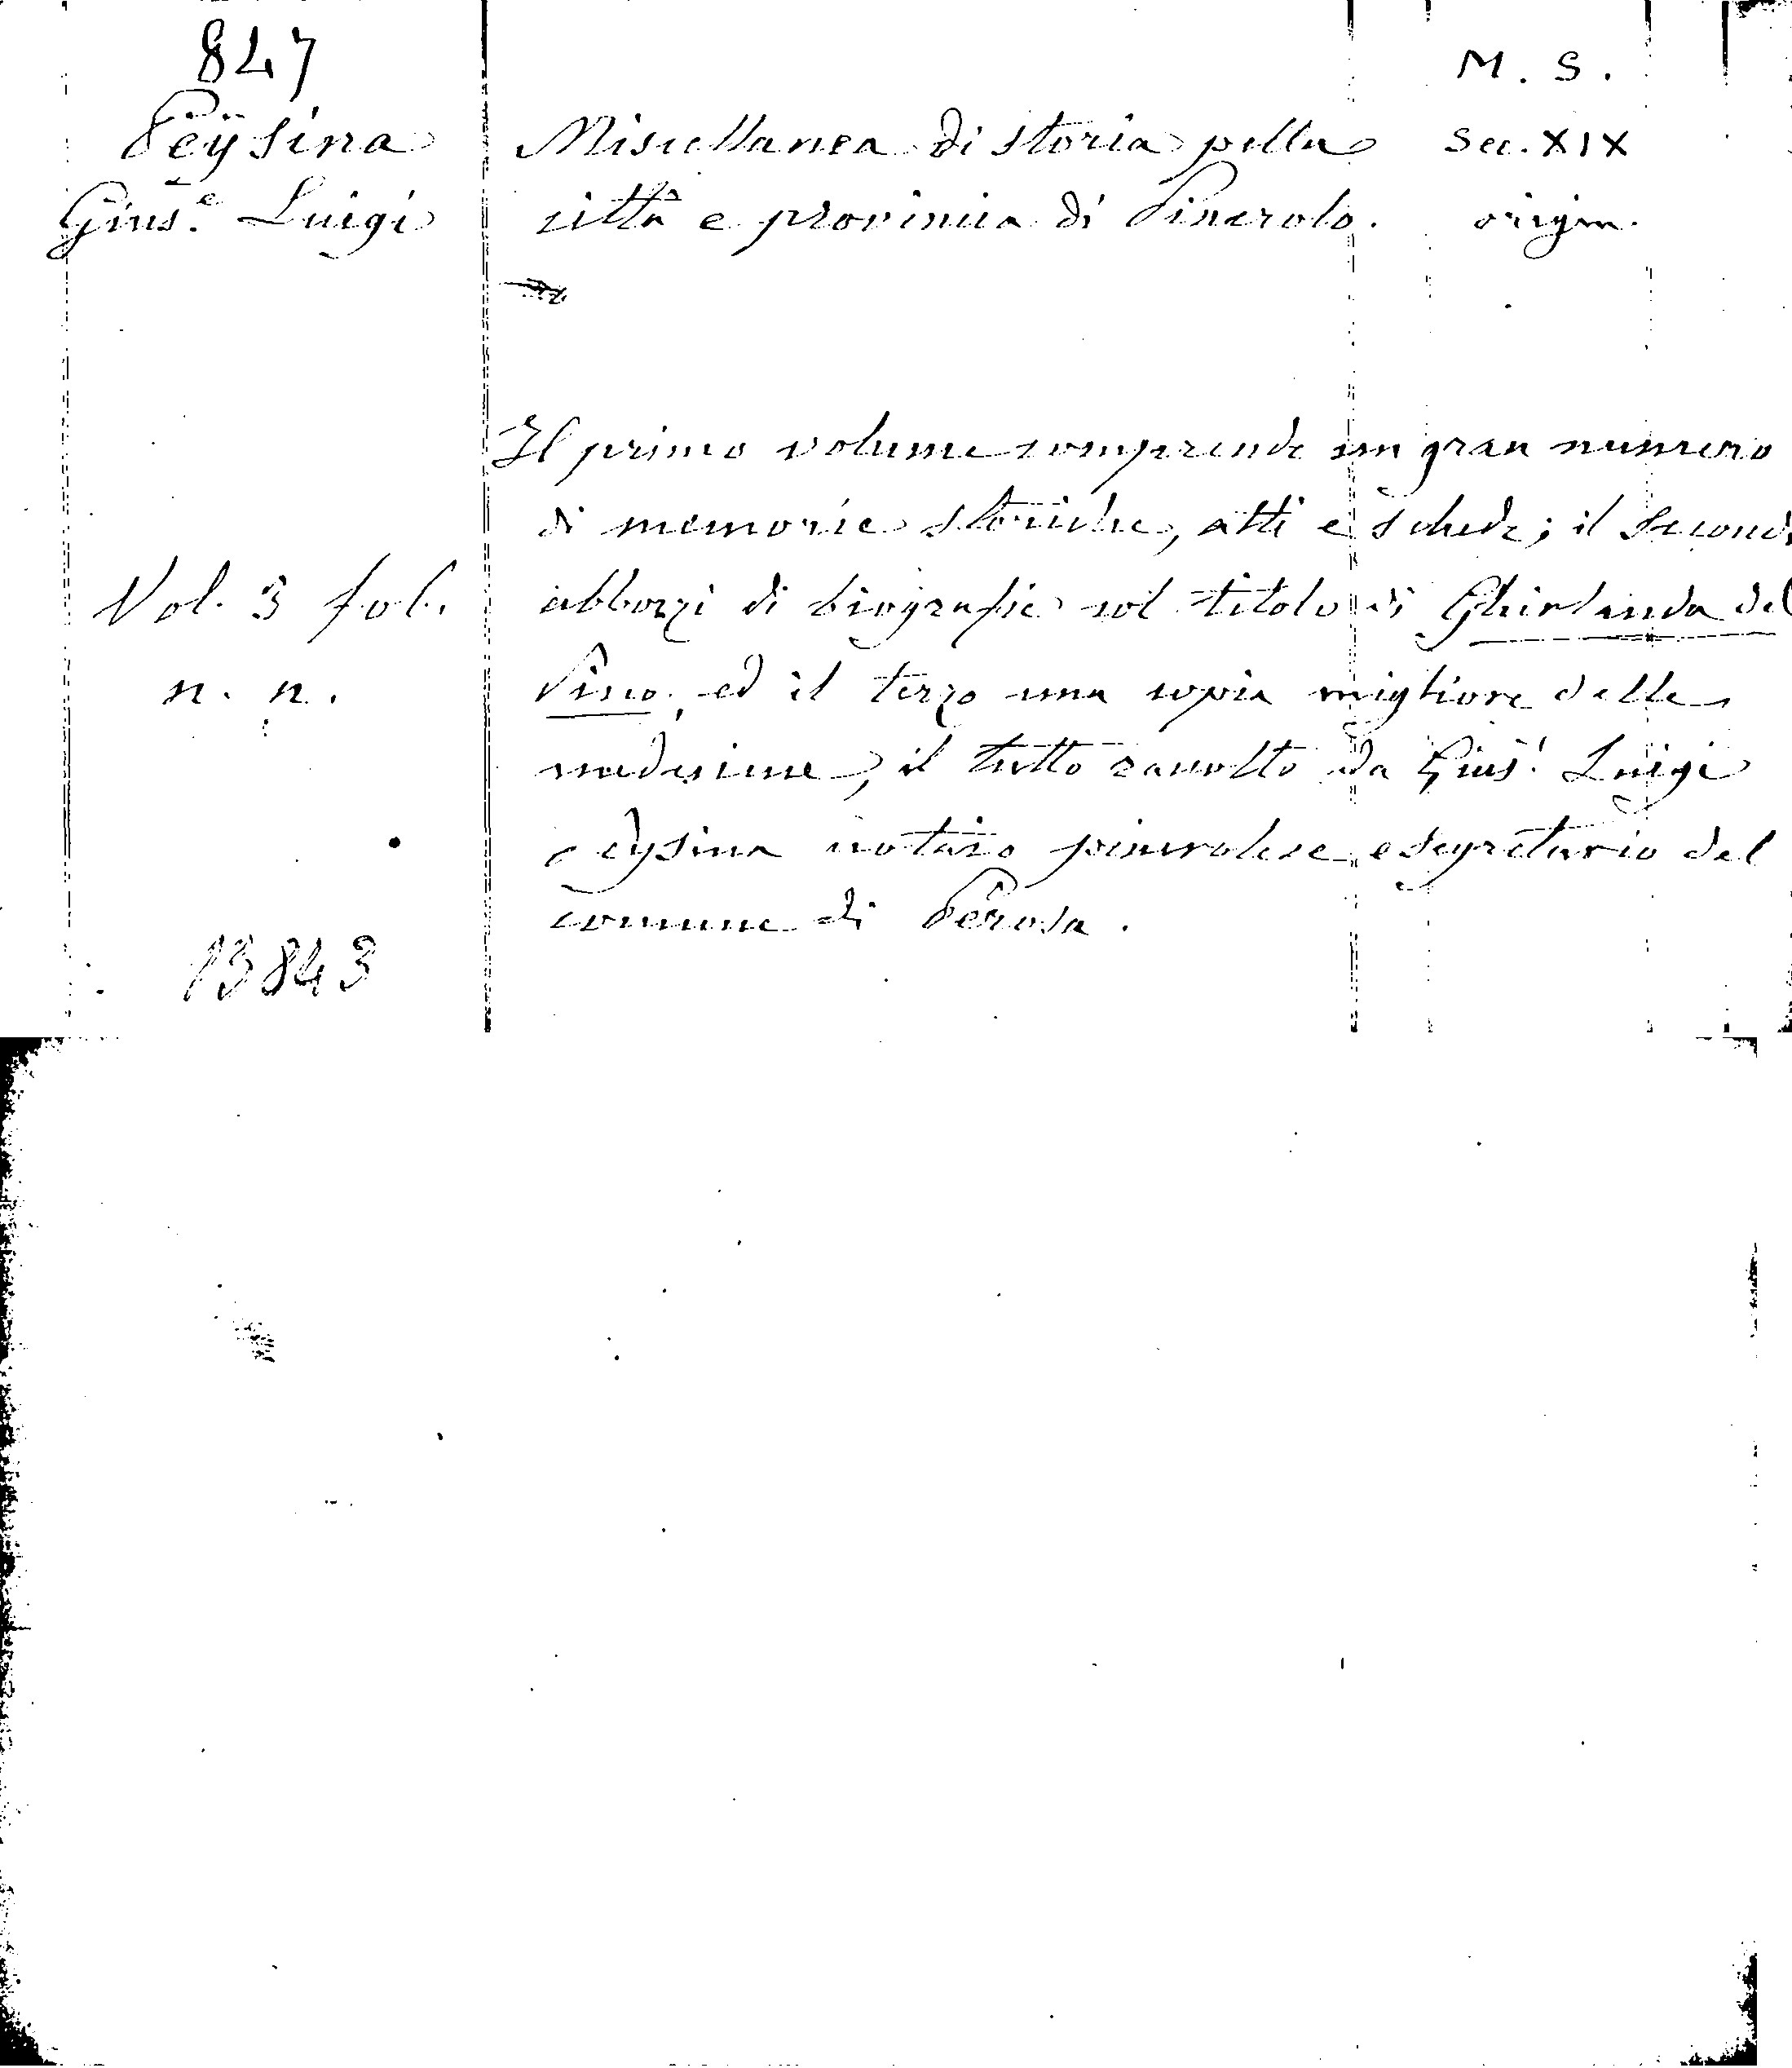 847
M. S.
Peÿsina
Gius.e Luigi
Miscellanea di storia pella
città e provincia di Pinerolo.
Sec. XIX
origin.
Il primo volume comprende un gran numero
di memorie storiche, atti e schede; il second
abbozzi di biografie col titolo di Ghirlanda del
Pino, ed il terzo una copia migliore delle
medesime, il tutto raccolto da Gius. Luigi
Peysina notaro pinerolese e segretario del
comune di Perosa.
Vol. 3 fol.
n. n.
13843